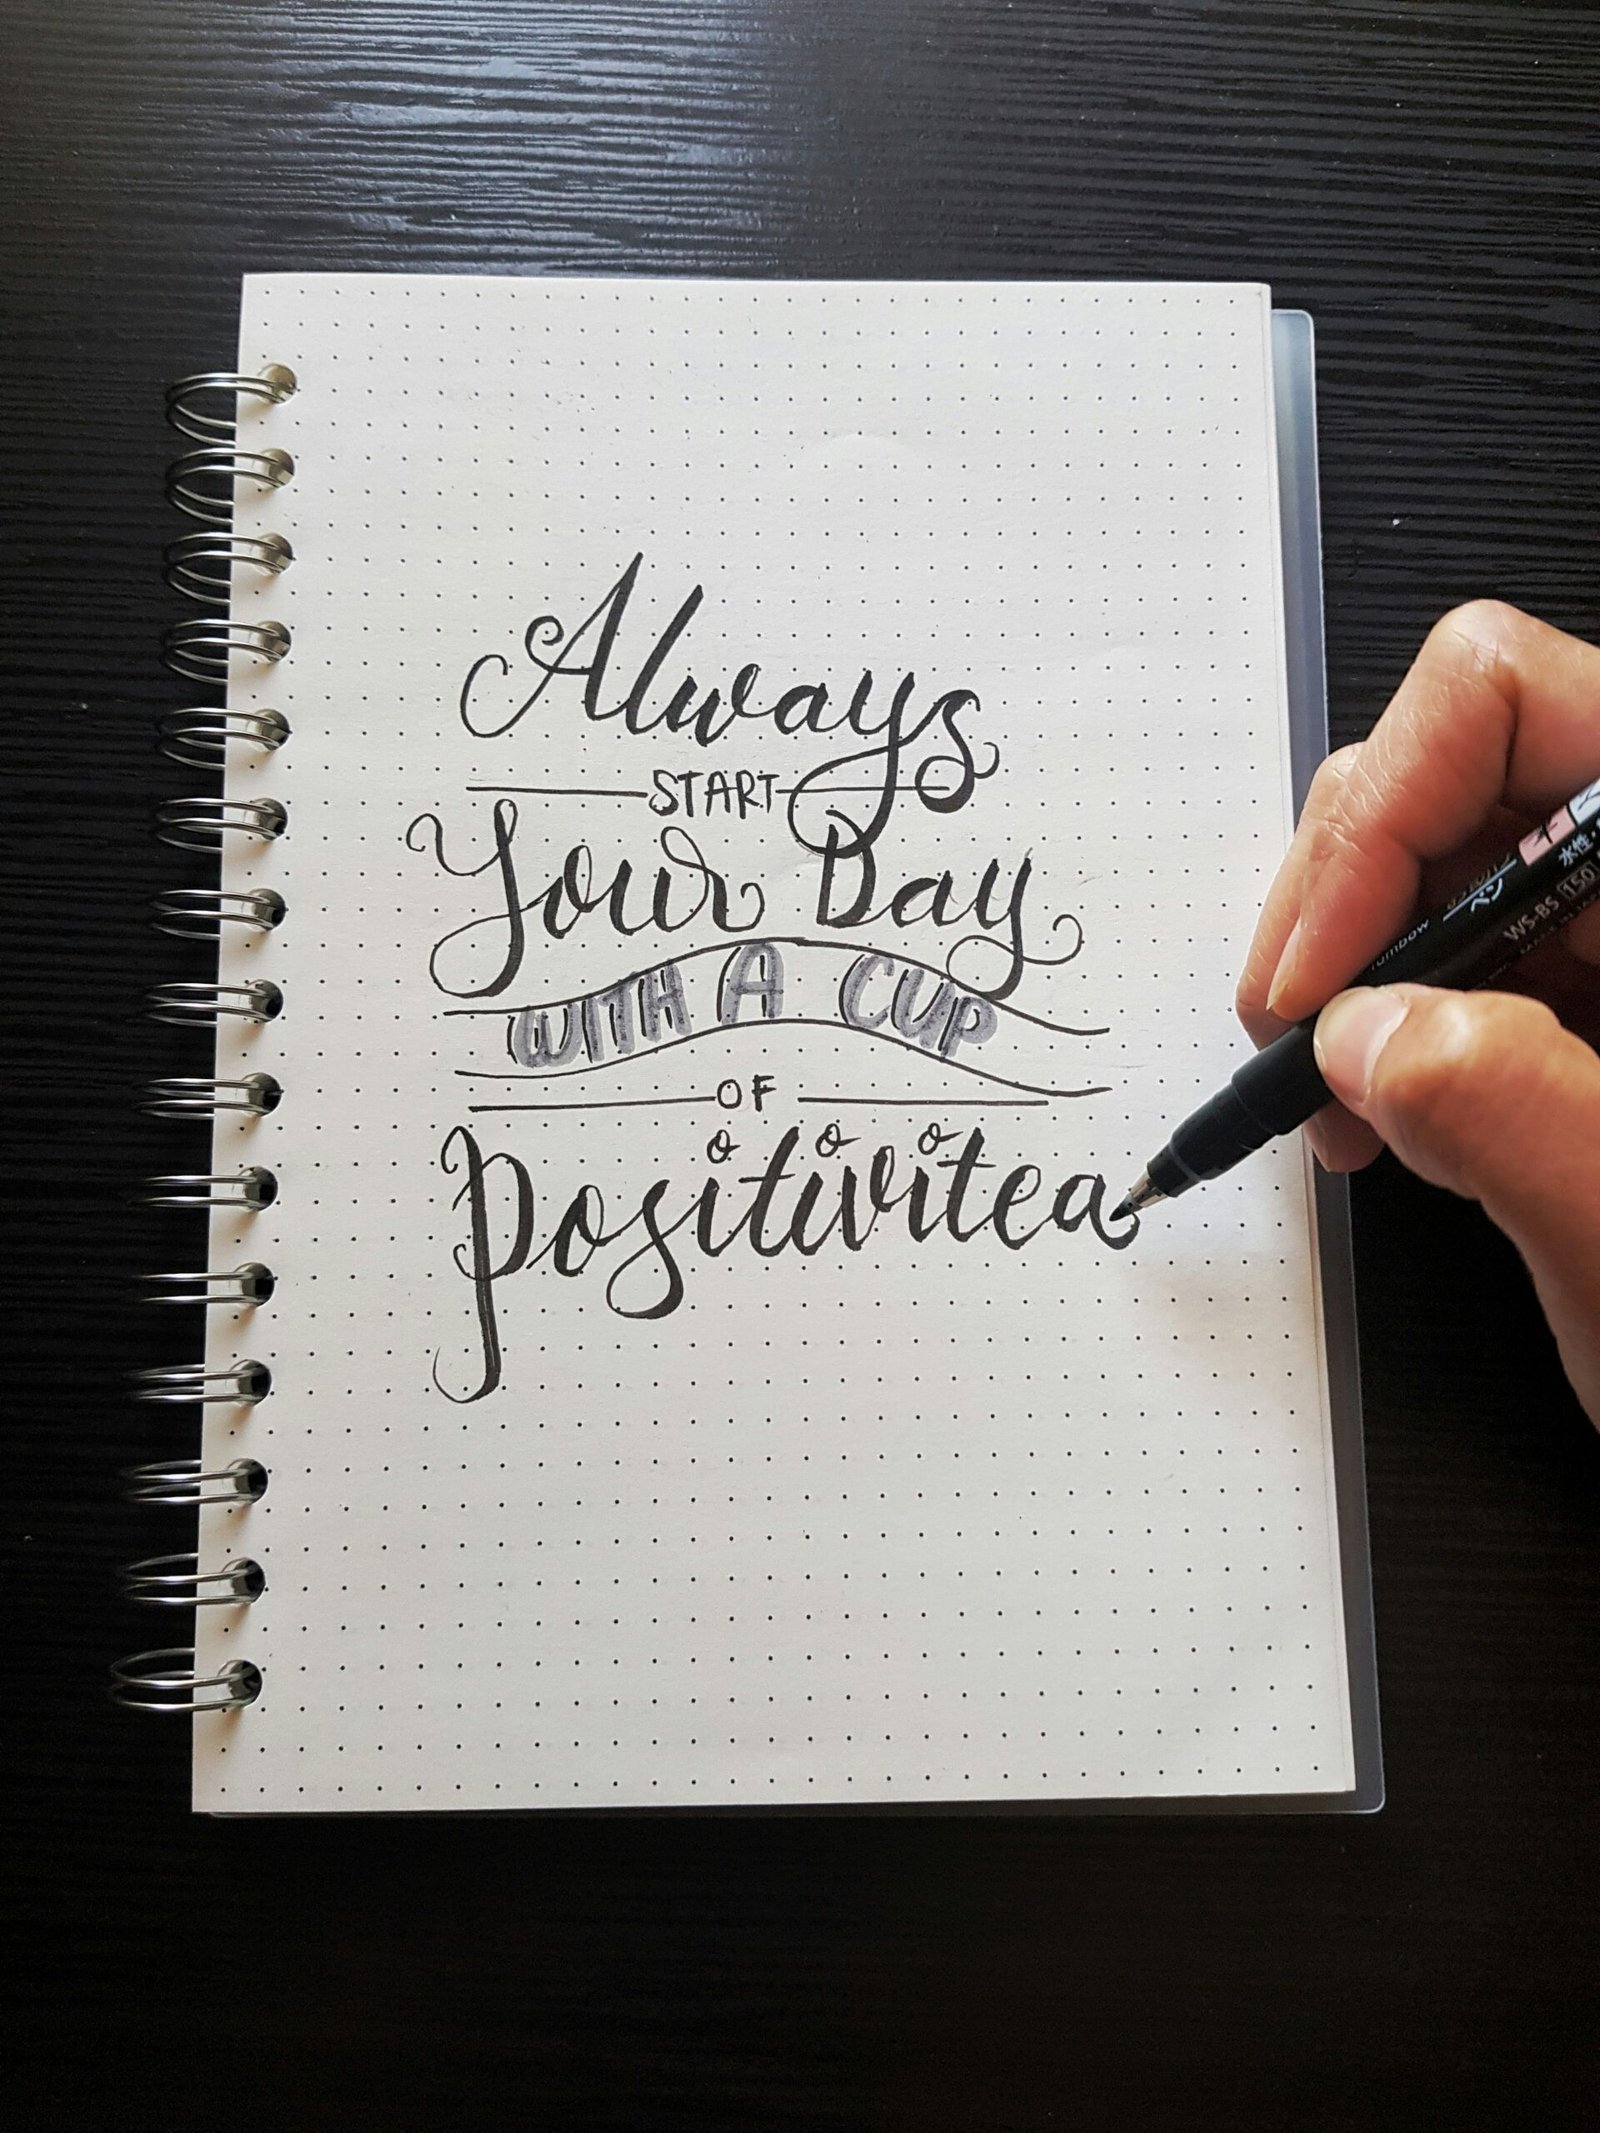 Always
START
Your Day
WITH A CUP
OF
Positivitea
Tombow
水性
WS-BS
150